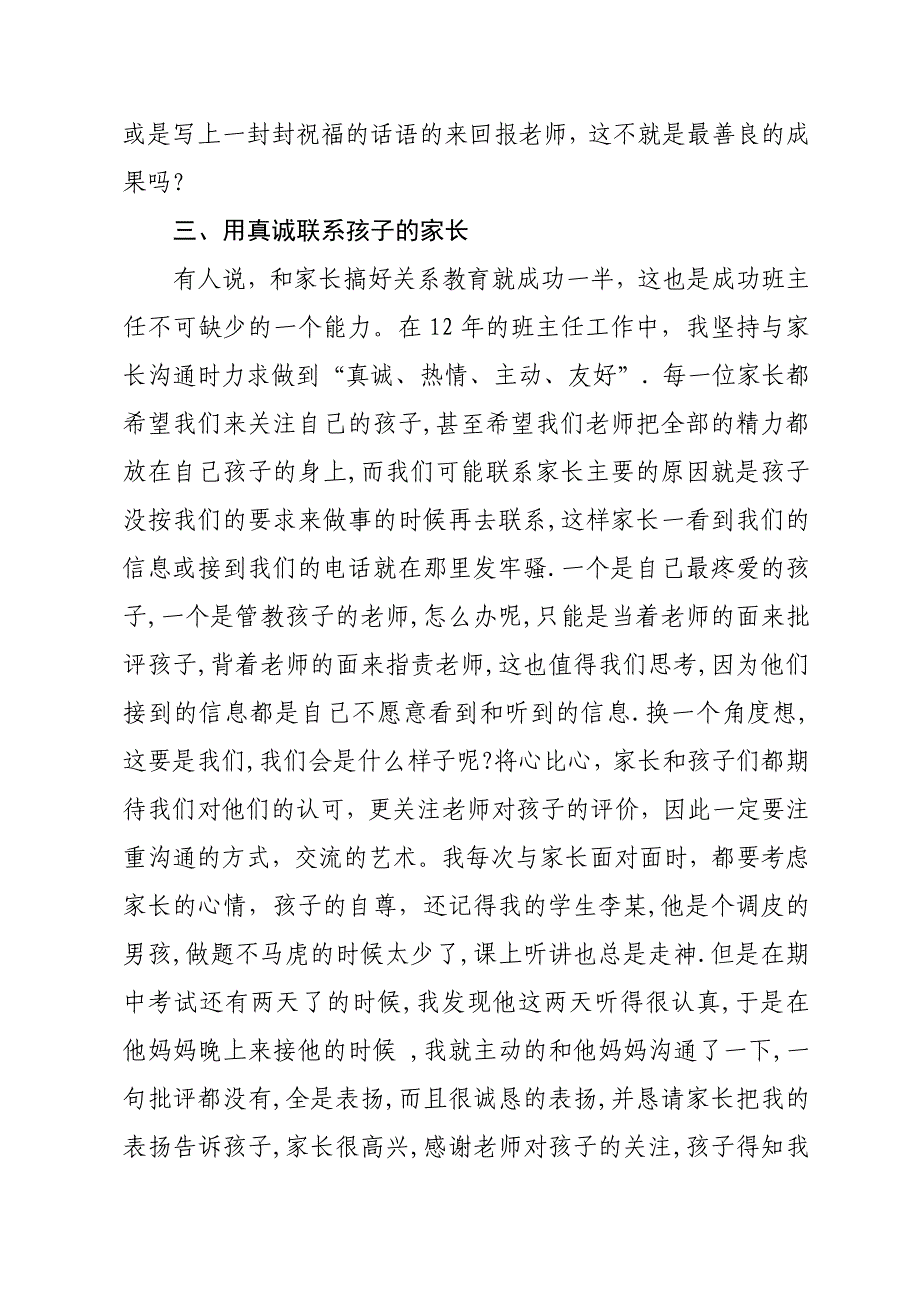 或是写上一封封祝福的话语的来回报老师，这不就是最善良的成
果吗？
三、用真诚联系孩子的家长
有人说，和家长搞好关系教育就成功一半，这也是成功班主
任不可缺少的一个能力。在 12 年的班主任工作中，我坚持与家
长沟通时力求做到“真诚、热情、主动、友好”. 每一位家长都
希望我们来关注自己的孩子,甚至希望我们老师把全部的精力都
放在自己孩子的身上,而我们可能联系家长主要的原因就是孩子
没按我们的要求来做事的时候再去联系,这样家长一看到我们的
信息或接到我们的电话就在那里发牢骚.一个是自己最疼爱的孩
子,一个是管教孩子的老师,怎么办呢,只能是当着老师的面来批
评孩子,背着老师的面来指责老师,这也值得我们思考,因为他们
接到的信息都是自己不愿意看到和听到的信息.换一个角度想,
这要是我们,我们会是什么样子呢?将心比心，家长和孩子们都期
待我们对他们的认可，更关注老师对孩子的评价，因此一定要注
重沟通的方式，交流的艺术。我每次与家长面对面时，都要考虑
家长的心情，孩子的自尊，还记得我的学生李某,他是个调皮的
男孩,做题不马虎的时候太少了,课上听讲也总是走神.但是在期
中考试还有两天了的时候,我发现他这两天听得很认真,于是在
他妈妈晚上来接他的时候 ,我就主动的和他妈妈沟通了一下,一
句批评都没有,全是表扬,而且很诚恳的表扬,并恳请家长把我的
表扬告诉孩子,家长很高兴,感谢老师对孩子的关注,孩子得知我